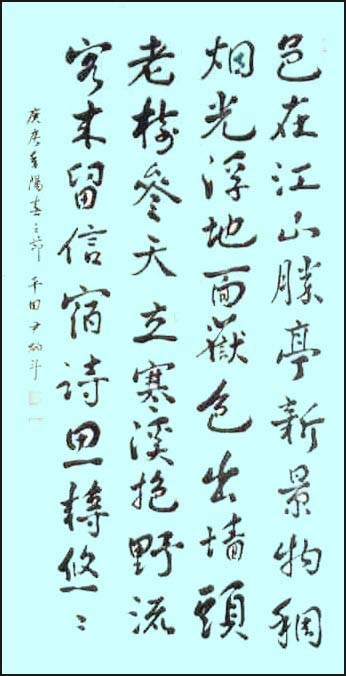 邑在江山勝亭新景物稠
烟光浮地面嶽色出墻頭
老樹參天立寒溪抱野流
客來留信宿詩思轉悠〻
陽春之節 田 尹炳斗